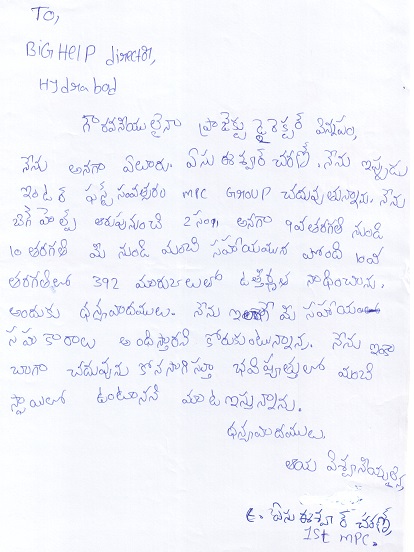 To,
BiG HelP director,
Hydrabad
గౌరవనీయులైనా ప్రాజెక్టు డైరెక్టర్ విన్నపం,
నేను అనగా ఏలూరు. ఏసు ఈశ్వర్ చరణ్. నేను ఇప్పుడు
ఇంటర్ ఫస్ట్ సంవత్సరం MPC GrouP చదువుతున్నాను. నేను
బిగ్ హెల్ప్ తరుపునుంచి 2సం౹౹ అనగా 9వతరగతి నుండి
10 తరగతి మీ నుండి మంచి సహాయమును పొంది 10వ
తరగతిలో 392 మారుకులలో ఉత్తీర్ణత సాధించాను.
అందుకు ధన్యవాదములు. నేను ఇలాగే మీ సహాయ
సహకారాలు అందిస్తారని కోరుకుంటున్నాను. నేను ఇంకా
బాగా చదువును కొనసాగిస్తూ భవిష్యత్తులో మంచి
స్థాయిలో ఉంటానని మాట ఇస్తున్నాను.
ధన్యవాదములు.
తమ విశ్వసనీయులైన
ఏసు ఈశ్వర్ చరణ్,
1st MPC.